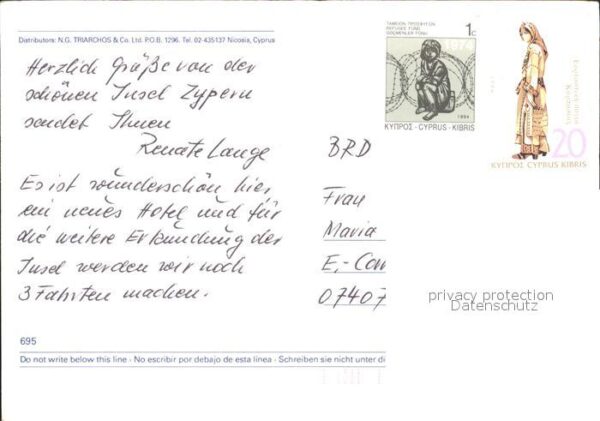 Distributors: N.G. TRIARCHOS & Co. Ltd. P.O.B. 1296. Tel. 02-435137 Nicosia, Cyprus
Herzlich Grüße von der
schönen Insel Zypern
sendet Ihnen
Renate Lange
Es ist wunderschön hier,
ein neues Hotel und für
die weitere Erkundung der
Insel werden wir noch
3 Fahrten machen.
695
Do not write below this line - No escribir por debajo de esta linea - Schreiben sie nicht unter di
REFUGEE FUND
GÖÇMENLER FONU
1c
1974
1994
ΚΥΠΡΟΣ - CYPRUS - KIBRIS
20
ΚΥΠΡΟΣ CYPRUS KIBRIS
BRD
Frau
Maria
E.-
07407
privacy protection
Datenschutz